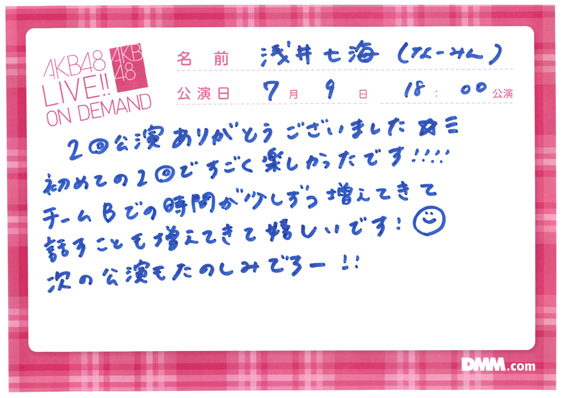 AKB48
LIVE!!
ON DEMAND
AKB
48
名前 浅井七海 (なーみん)
公演日 7月9日 18:00公演
2回公演ありがとうございました☆ミ
初めての2回ですごく楽しかったです!!!!
チームBでの時間が少しずつ増えてきて
話すことも増えてきて嬉しいです!
次の公演もたのしみでるー!!
DMM.com